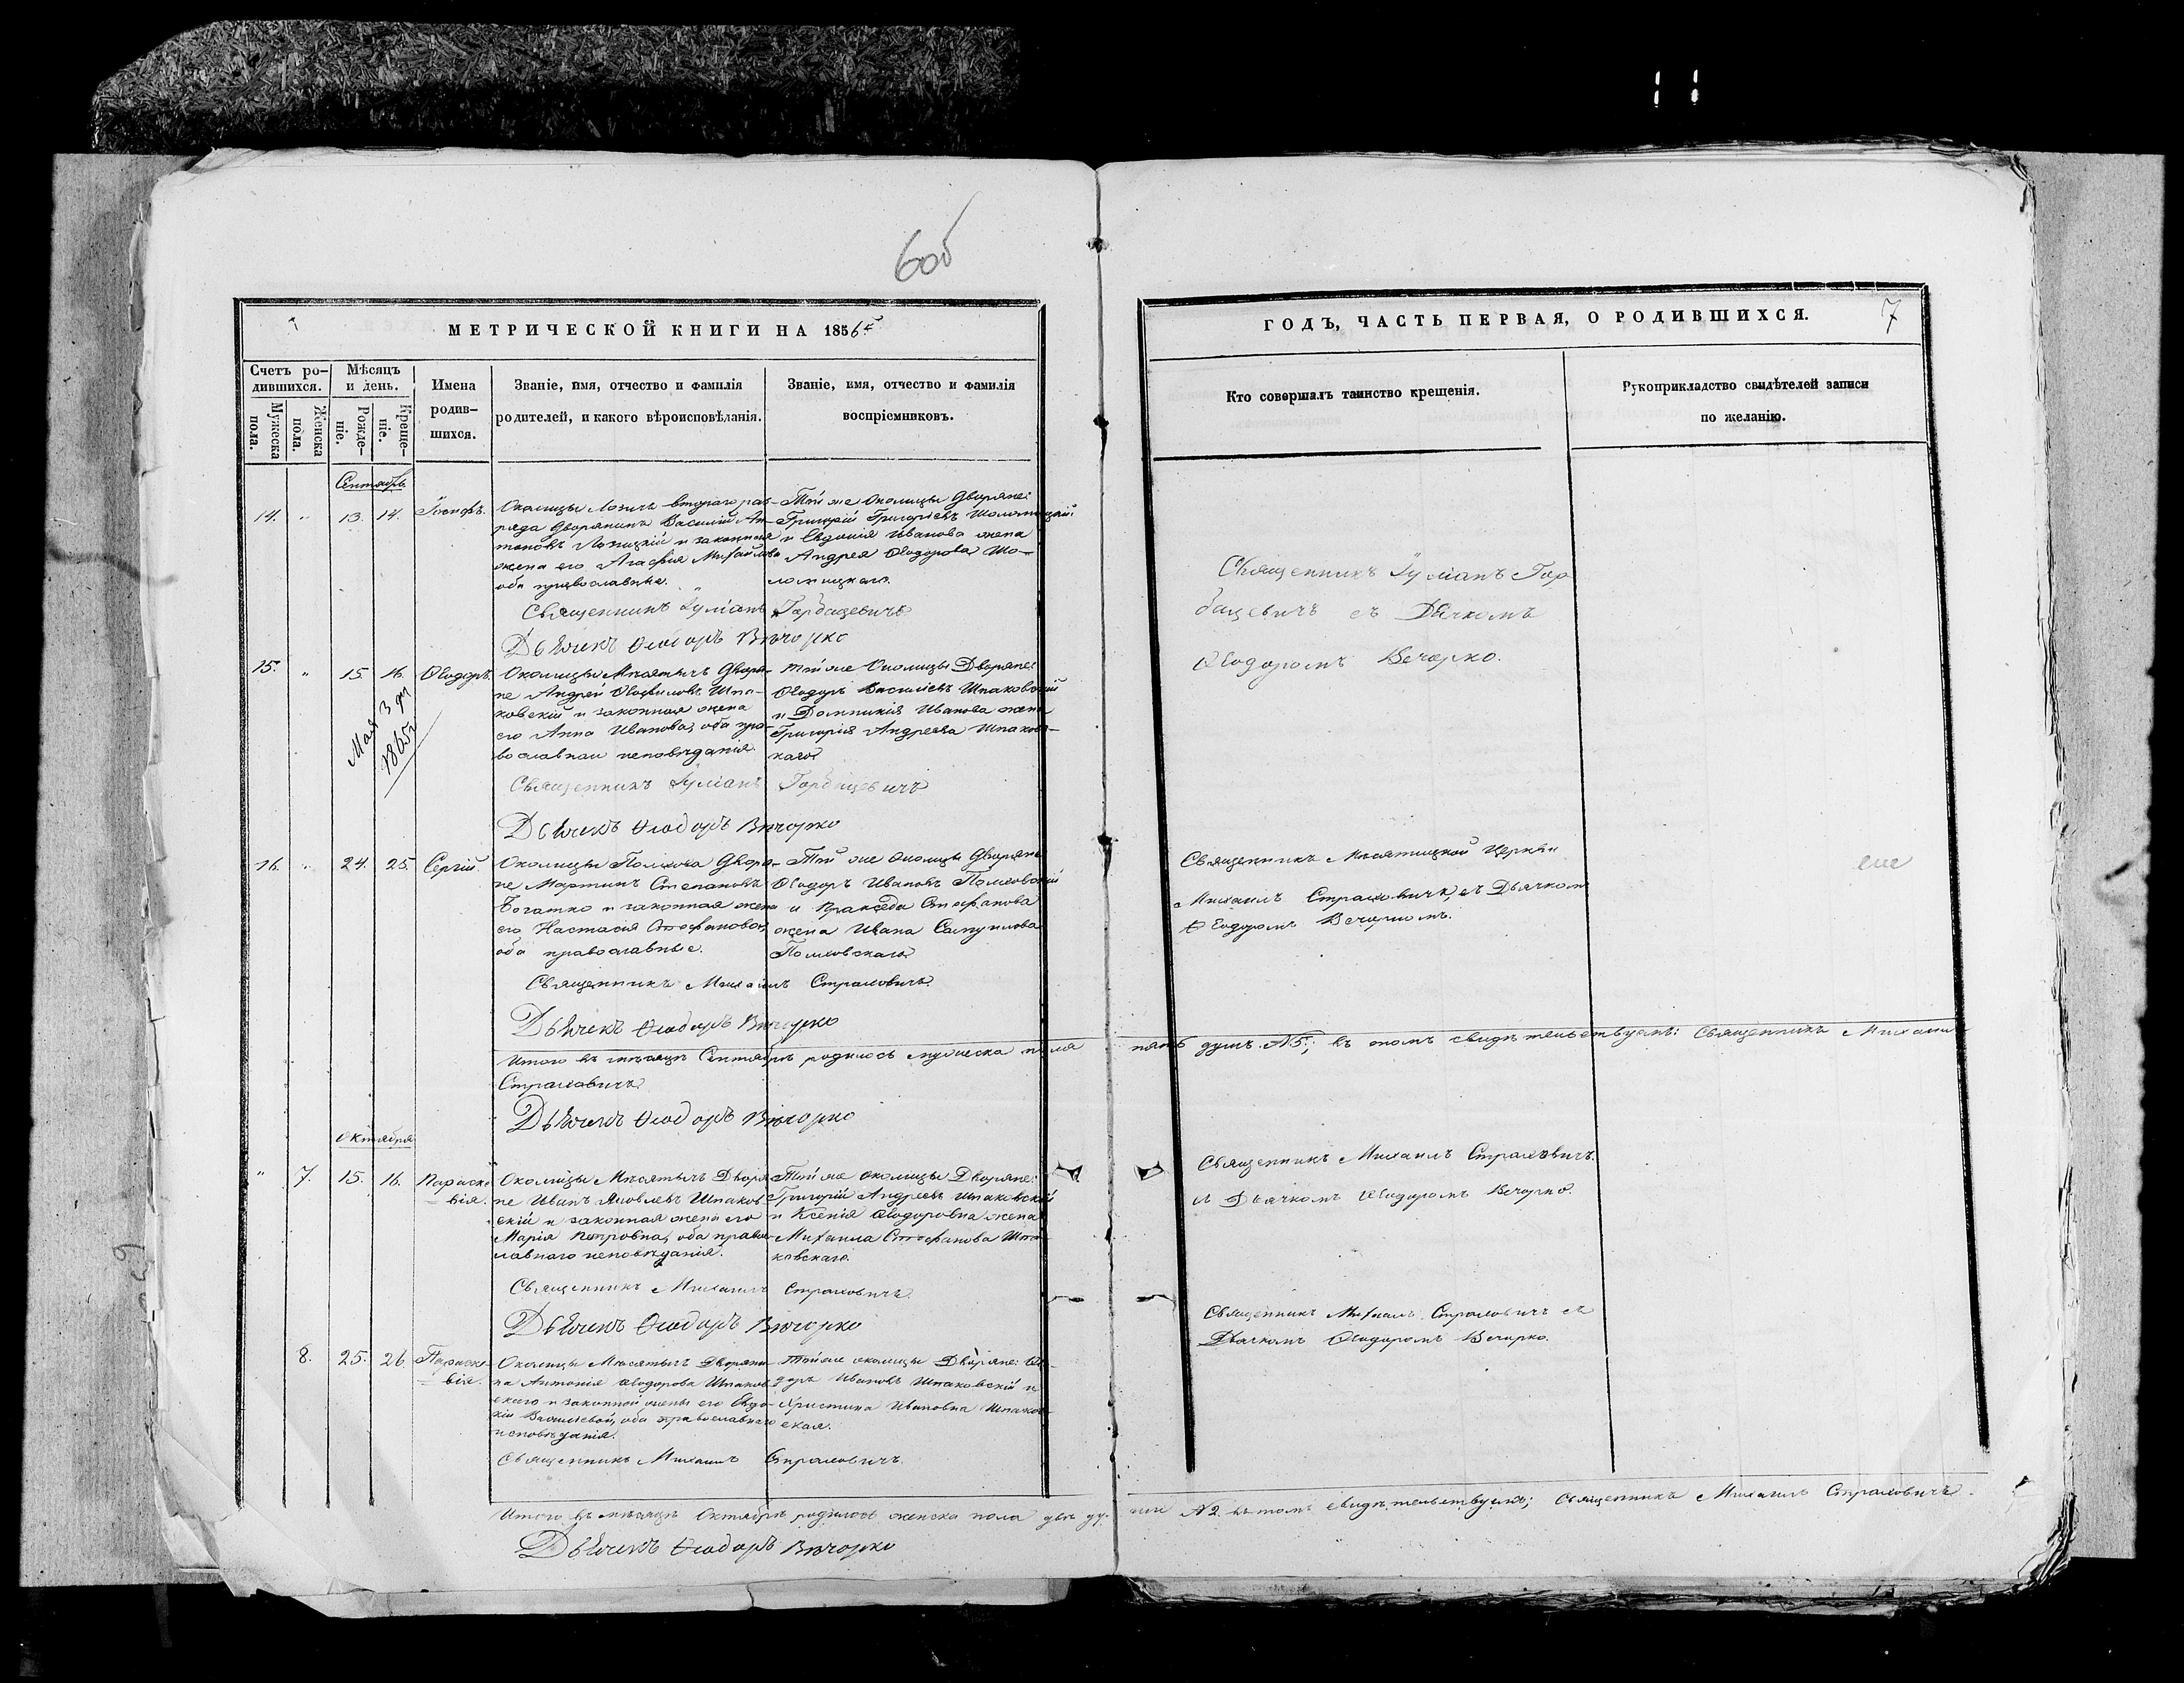 6об
МЕТРИЧЕСКОЙ КНИГИ НА 1856й
Счетъ родившихся.
Мужеска пола.
Женска пола.
Мѣсяцъ и день.
Рожденіе.
Крещеніе.
Имена родившихся.
Званіе, имя, отчество и фамилія
родителей, и какого вѣроисповѣданія.
Званіе, имя, отчество и фамилія
воспріемниковъ.
Сентябрь
14. „ 13. 14. Іосифъ.
Околицы Лозичъ втораго раз-
ряда Дворянинъ Василій Ан-
тоновъ Лозицкій и законная
жена его Агафія Михайлова
оба православные.
Той же Околицы Дворяне:
Григорій Григорьевъ
и Евдокія Иванова жена
Андрея Ѳеодорова
Священникъ Іуліанъ Горбацевичъ
Дьячекъ Ѳеодоръ Вечорко
15. „ 15. 16. Ѳеодоръ.
Мая 3 дн
1865г
Околицы Мѣсятичъ Дворя-
не Андрей Ѳеофиловъ Шпа-
ковскій и законная жена
его Анна Иванова, оба пра-
вославнаи исповѣданія.
Той же Околицы Дворяне:
Ѳеодоръ Василіевъ Шпаковскій
и Домникія Иванова жена
Григорія Андреева Шпаков-
каго
Священникъ Іуліанъ Горбацевичъ
Дьячекъ Ѳеодоръ Вечорко
16. „ 24. 25. Сергій.
Околицы Полхова Дворя-
не Мартинъ Степановъ
Богатко и законная жена
его Настасія Стефанова,
оба православные.
Той же Околицы Дворяне
Ѳеодоръ Ивановъ Полховскій
и Праксѣда Стефанова
жена Ивана Самуилова
Полховскаго
Священникъ Михаилъ Страховичъ.
Дьячекъ Ѳеодоръ Вечорко
Итого въ мѣсяцѣ Сентябрѣ родилось мужеска пола
Страховичъ
Дьячекъ Ѳеодоръ Вечорко
Октября
„ 7. 15. 16. Параске-
вія.
Околицы Мѣсятичъ Дворя-
не Иванъ Яковлевъ Шпаков-
скій и законная жена его
Марія Петровна, оба право-
славнаго исповѣданія.
Той же околицы Дворяне:
Григорій Андреевъ Шпаковскій
и Ксенія Ѳеодоровна жена
Михаила Стефанова Шпа-
ковскаго.
Священникъ Михаилъ Страховичъ.
Дьячекъ Ѳеодоръ Вечорко
8. 25. 26. Параске-
вія.
Околицы Мѣсятичъ Дворяни-
на Антонія Ѳеодорова Шпаков-
скаго и законной жены его Евдо-
кіи Василіевой, оба православнаго
исповѣданія.
Той же околицы Дворяне: Ѳео-
доръ Ивановъ Шпаковскій и
Христина Ивановна Шпаков-
ская.
Священникъ Михаилъ Страховичъ
Итого въ мѣсяцѣ Октябрѣ родилось женска пола двѣ ду-
Дьячекъ Ѳеодоръ Вечорко
ГОДЪ, ЧАСТЬ ПЕРВАЯ, О РОДИВШИХСЯ.
7
Кто совершалъ таинство крещенія.
Рукоприкладство свидѣтелей записи
по желанію.
Священникъ Іуліанъ Гор-
бацевичъ съ Дьячкомъ
Ѳеодоромъ Вечорко.
Священникъ Мѣсятицкой Церкви
Михаилъ Страховичъ, съ Дьячкомъ
Ѳеодоромъ Вечоркомъ.
пять душъ. №5; въ томъ свидѣтельствуемъ: Священникъ Михаилъ
Священникъ Михаилъ Страховичъ.
съ Дьячкомъ Ѳеодоромъ Вечорко.
Священникъ Михаилъ Страховичъ съ
Дьячкомъ Ѳеодоромъ Вечорко.
ши №2. въ томъ свидѣтельствуемъ; Священникъ Михаилъ Страховичъ.